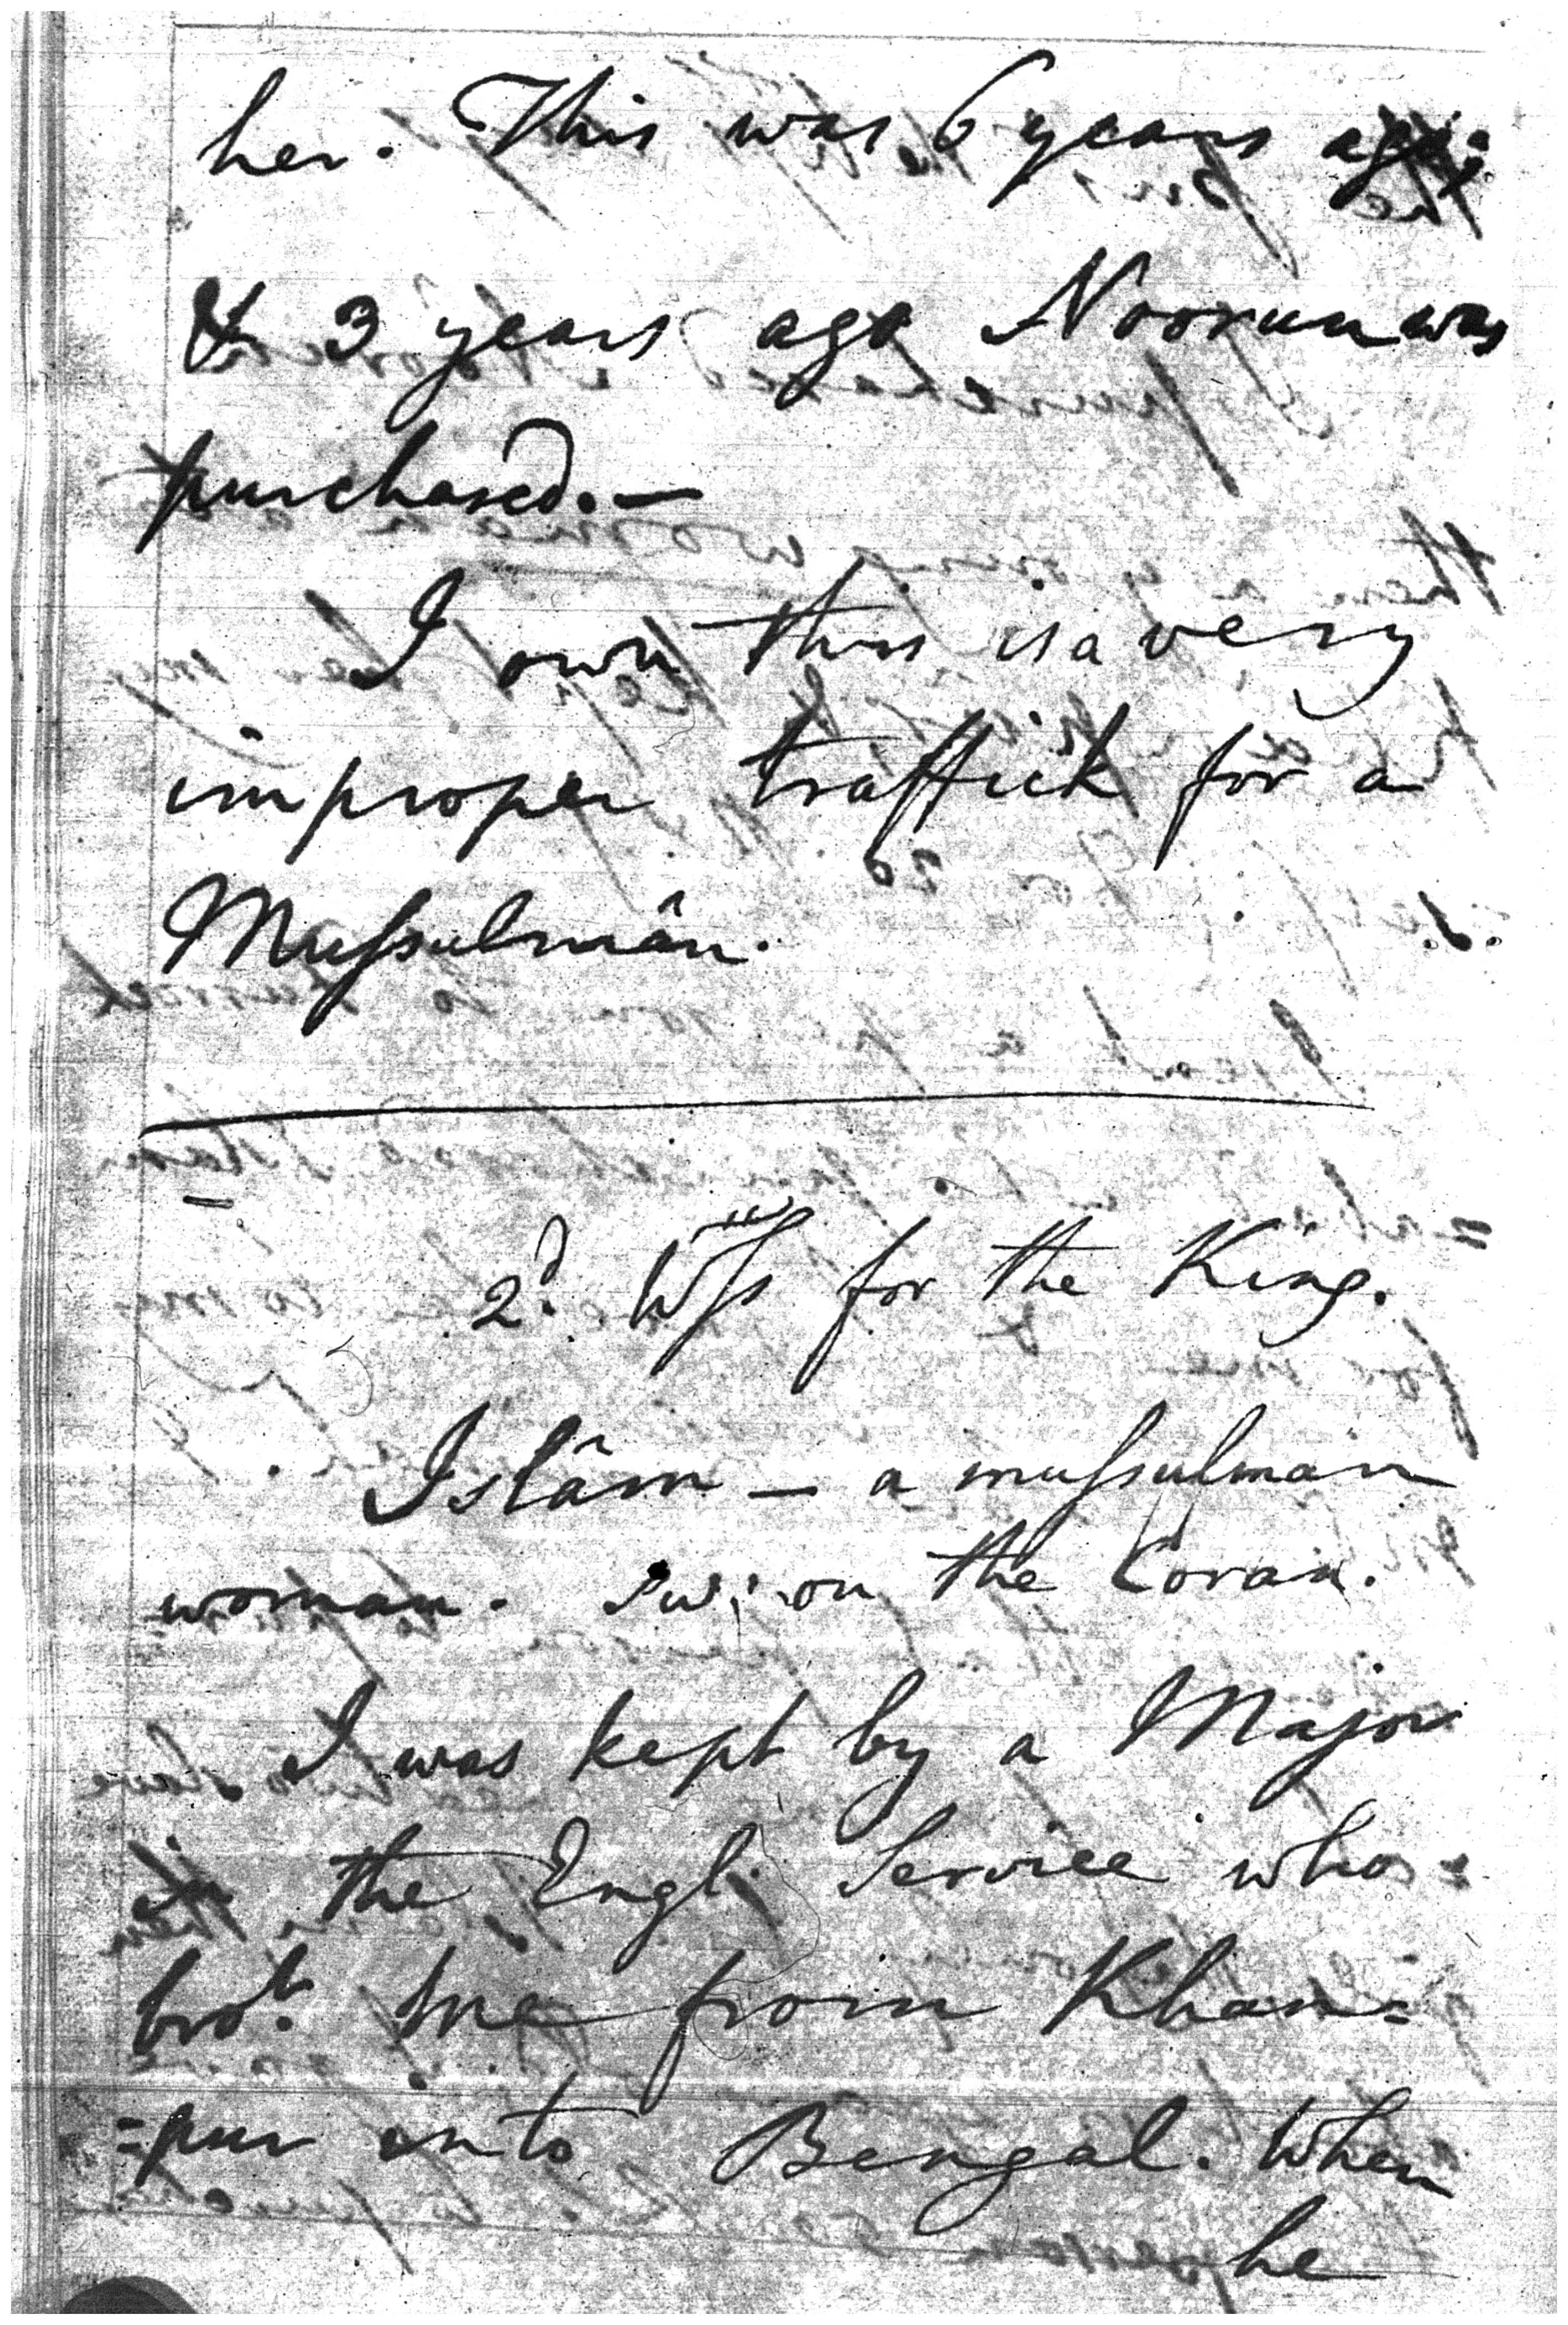 her. This was 6 years ago;
& 3 years ago Noorun was
purchased.—
I own this is a very
improper traffick for a
Mussulmân.
2d. Wss for the King.
Islâm — a mussulman
woman. Sw: on the Coran.
I was kept by a Major
in the Engl. Service who
brot. me from Khan=
=pur into Bengal. When
he